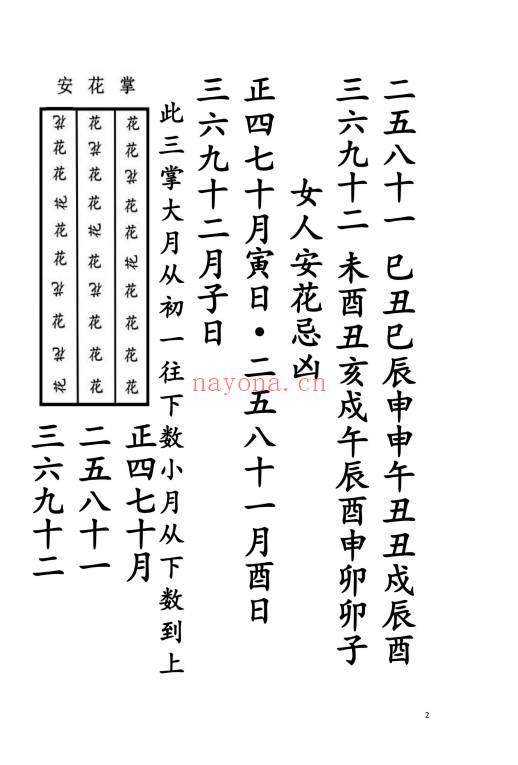 二五八十一 巳丑巳辰申申午丑丑戌辰酉
三六九十二 未酉丑亥戌午辰酉申卯卯子
女人安花忌凶
正四七十月寅日·二五八十一月酉日
三六九十二月子日
此三掌大月从初一往下数小月从下数到上
安花掌
花花花花花花花花花花
花花花花花花花花花花
花花花花花花花花花花
正四七十月
二五八十一
三六九十二
nayona.cn
2